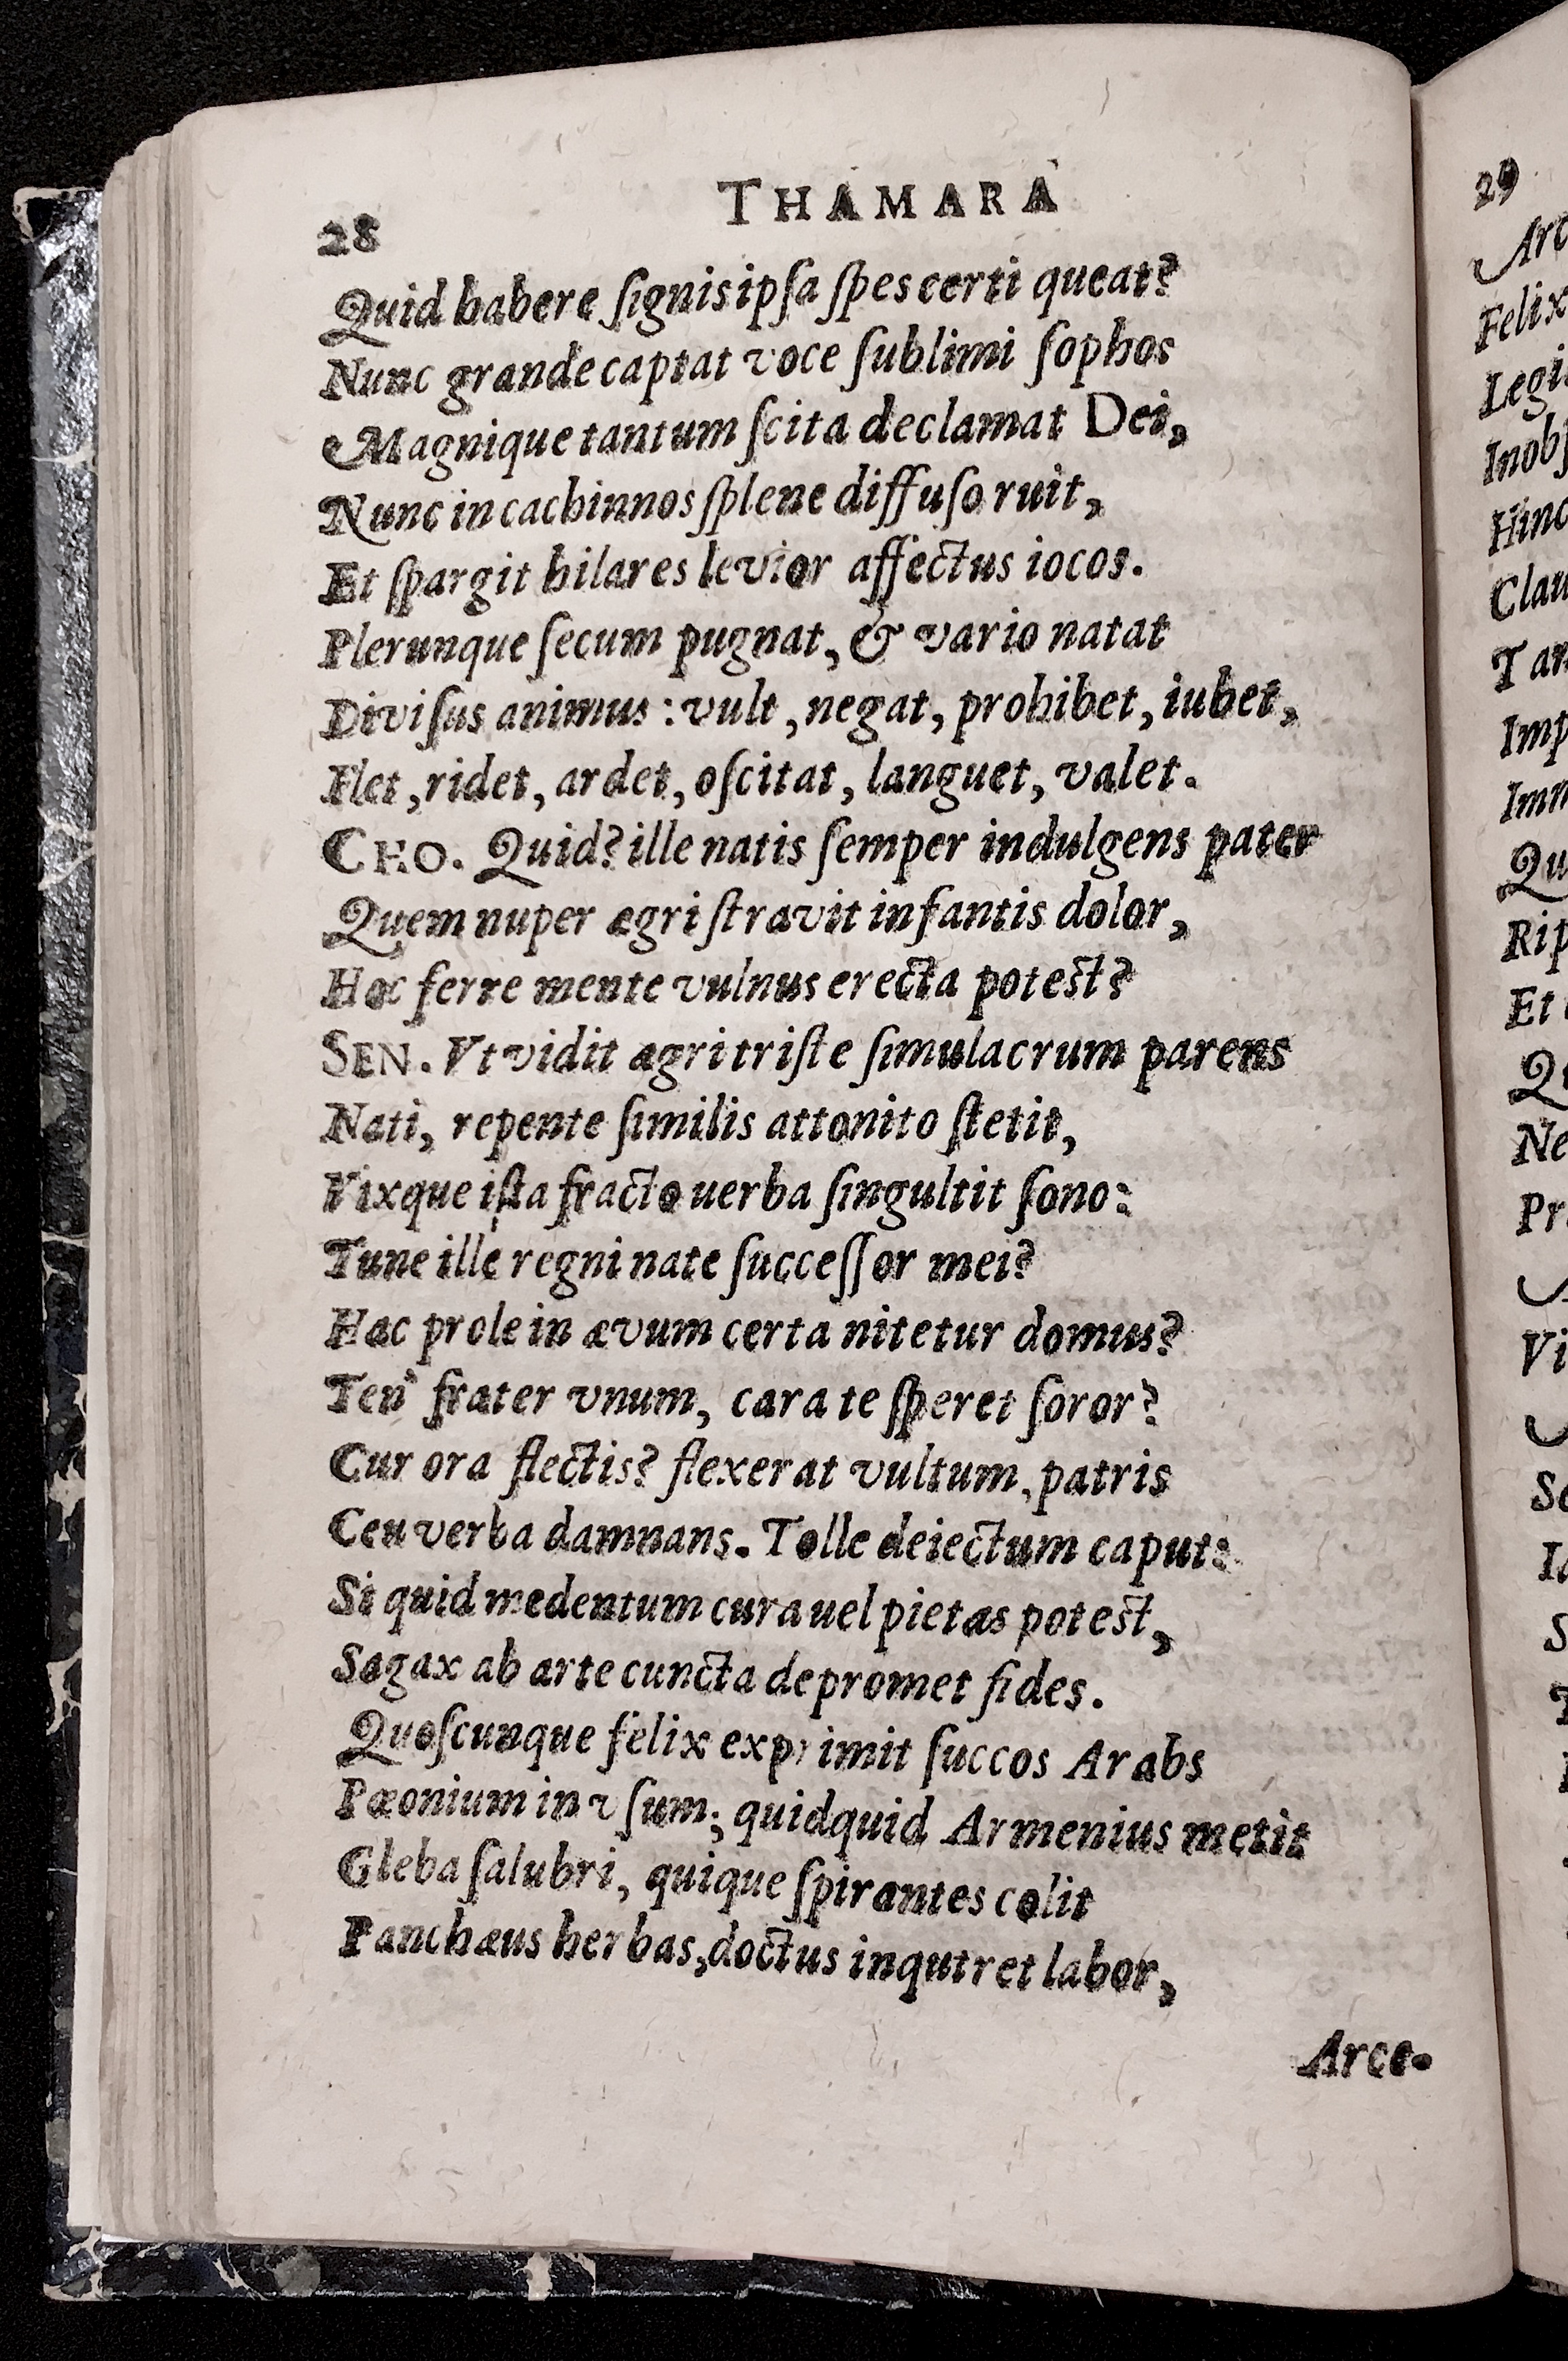 28
THAMARA
Quid habere ſignis ipſa ſpes certi queat?
Nunc grande captat voce ſublimi ſophos
Magnique tantum ſcita declamat Dei,
Nunc in cachinnos ſplene diffuſo ruit,
Et ſpargit hilares levior affectus iocos.
Plerunque ſecum pugnat, & vario natat
Diviſus animus: vult, negat, prohibet, iubet,
Flet, ridet, ardet, oſcitat, languet, valet.
CHO. Quid? ille natis ſemper indulgens pater
Quem nuper ægri ſtravit infantis dolor,
Hoc ferre mente vulnus erecta potest?
SEN. Vt vidit ægri triſte ſimulacrum parens
Nati, repente ſimilis attonito ſtetit,
Vixque iſta fracto uerba ſingultit ſono:
Tune ille regni nate ſucceſſor mei?
Hac prole in ævum certa nitetur domus?
Ten' frater vnum, cara te ſperet ſoror?
Cur ora flectis? flexerat vultum, patris
Ceu verba damnans. Tolle deiectum caput:
Si quid medentum cura uel pietas potest,
Sagax ab arte cuncta depromet fides.
Quoſcunque felix exprimit ſuccos Arabs
Pæonium in vſum; quidquid Armenius metit
Gleba ſalubri, quique ſpirantes colit
Panchæus herbas, doctus inqutret labor,
Arce-
29
Felix
Legi
Hinc
Et